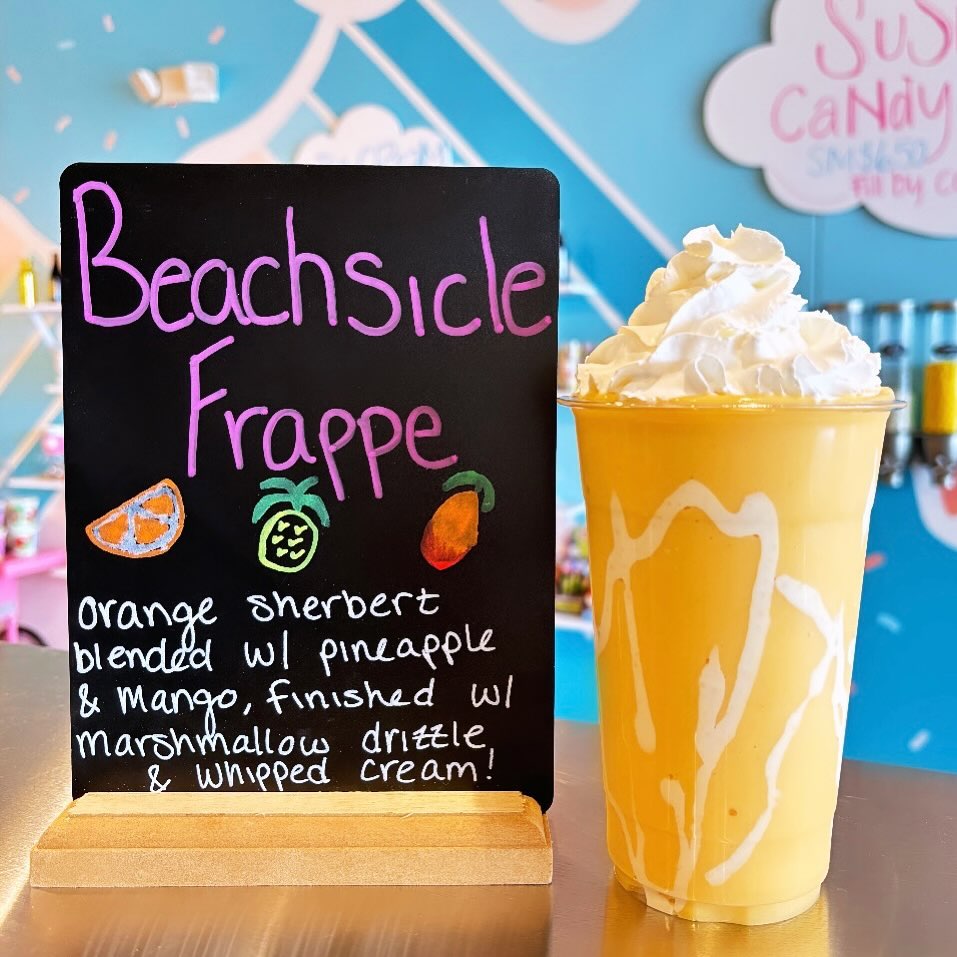 Beachsicle
Frappe
orange sherbert
blended w/ pineapple
& mango, finished w/
marshmallow drizzle
& whipped cream!
CaNdy
SM $6.50